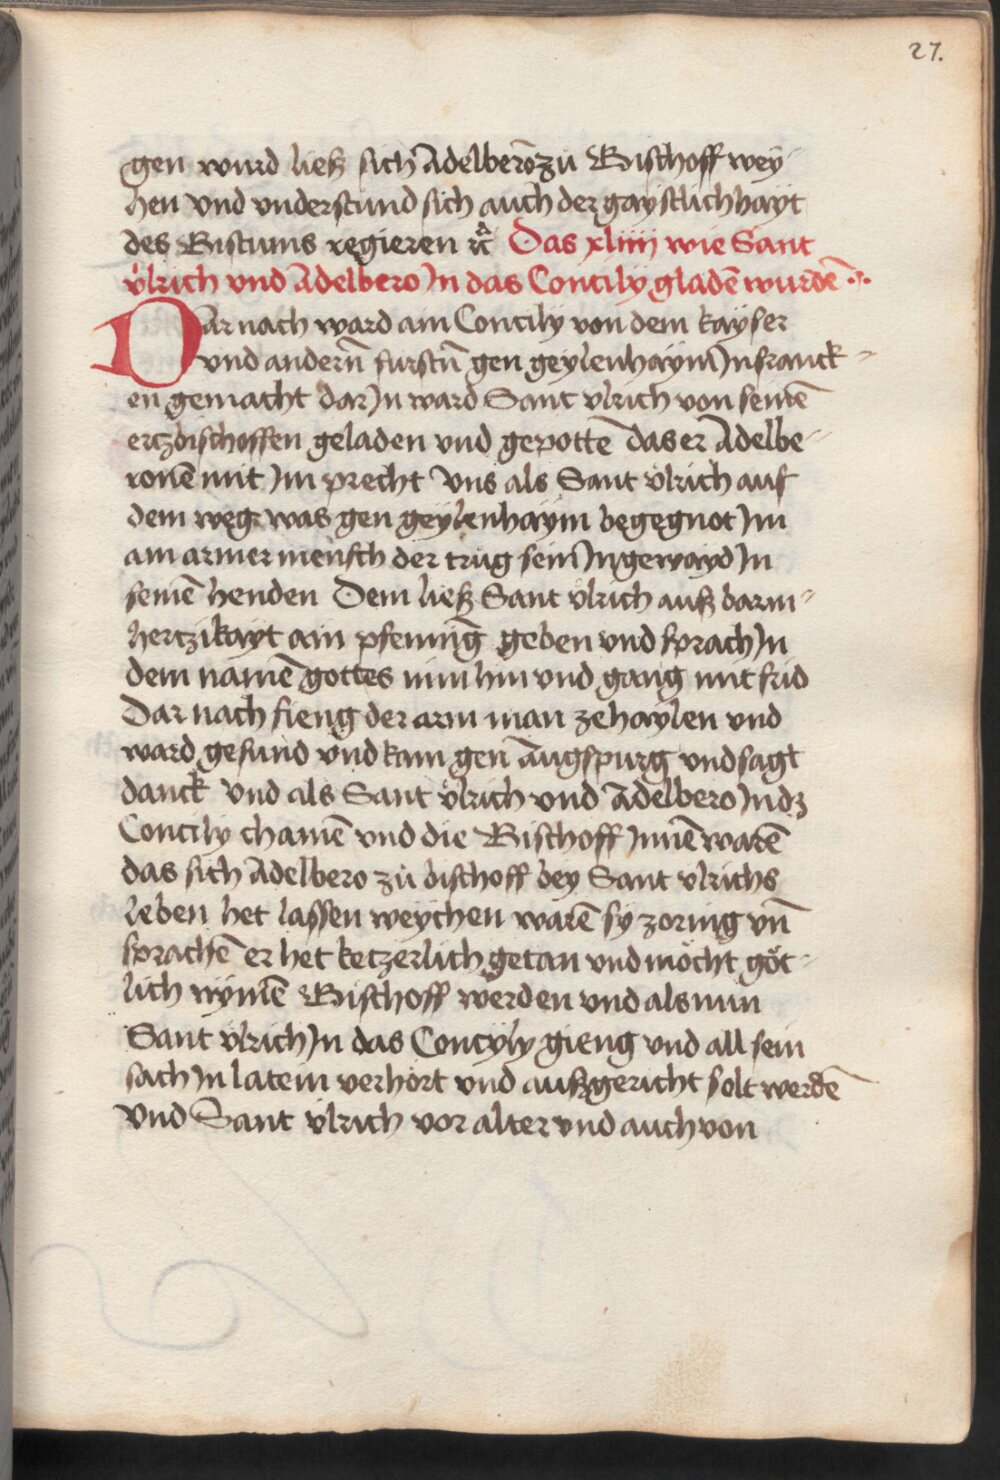 27.
gen wurd ließ sich Adelberō zu Bischoff wey-
hen vnd vnderstund sich auch der gaystlichhayt
des Bistums regieren ꝛc̄ Das xliiij wie Sant
vͦlrich vnd Adelbero Jn das Concily gladē wurdē
Dar nach ward am Concily von dem kayser
vnd andern̄ furstn̄ gen geylenhaym Jn franck-
en gemacht dar Jn ward Sant vlrich von seinē
ertzbischoffen geladen vnd gepottē das er Adelbe-
ronē mit Jm precht Vns als Sant vͦlrich auf
dem weg was gen geylenhaym begegnot Jm
am armer mensch der trug sein Jngewayd Jn
seinē henden Dem ließ Sant vͦlrich auß barm-
hertzikayt ain pfenning geben vnd sprach Jn
dem namē gottes nim hin vnd gang mit frid
Dar nach fieng der arm man ze haylen vnd
ward gesund vnd kam gen Augspurg vnd sagt
danck Vnd als Sant vͦlrich vnd Adelbero Jn dz
Concily chamē vnd die Bischoff Jnnē warē
das sich Adelbero zu bischoff bey Sant vlrichs
leben het lassen weychen warē sy zornig vn̄
sprachē er het ketzerlich getan vnd möcht göt-
lich nymē Bischoff werden vnd als nun
Sant vͦlrich Jn das Concyly gieng vnd all sein
sach Jn latein verhört vnd außgericht solt werdē
Vnd Sant vͦlrich vor alter vnd auch von